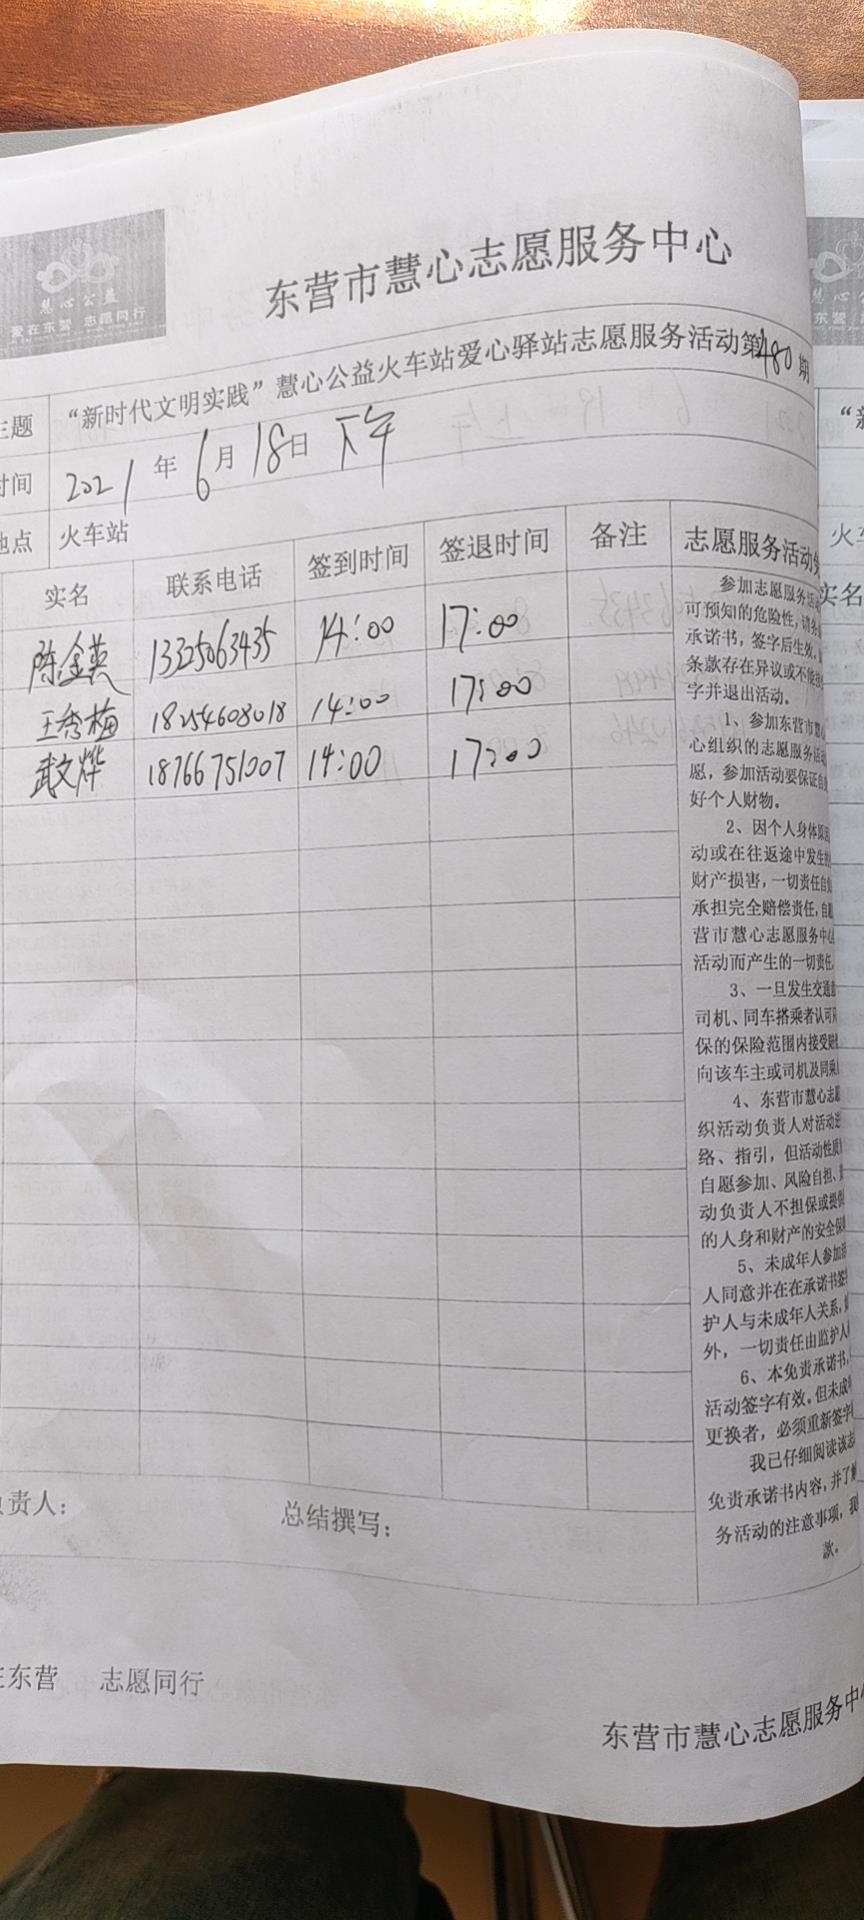 慧心公益
爱在东营 志愿同行
东营市慧心志愿服务中心
主题 “新时代文明实践”慧心公益火车站爱心驿站志愿服务活动第480期
时间 2021年6月18日 下午
地点 火车站
实名 联系电话 签到时间 签退时间 备注
陈金英 13325063435 14:00 17:00
王秀梅 18254608018 14:00 17:00
武文烨 18766751007 14:00 17:00
志愿服务活动免
参加志愿服务活
可预知的危险性,请务
承诺书,签字后生效。
条款存在异议或不能
字并退出活动。
1、参加东营市慧
心组织的志愿服务活
愿,参加活动要保证自
好个人财物。
2、因个人身体原因
动或在往返途中发生的
财产损害,一切责任自
承担完全赔偿责任,自愿
营市慧心志愿服务中心
活动而产生的一切责任
3、一旦发生交通
司机、同车搭乘者认可
保的保险范围内接受赔
向该车主或司机及同乘
4、东营市慧心志愿
织活动负责人对活动进
络、指引,但活动性质
自愿参加、风险自担、
动负责人不担保或提供
的人身和财产的安全保
5、未成年人参加活
人同意并在在承诺书签
护人与未成年人关系,
外,一切责任由监护人
6、本免责承诺书,
活动签字有效。但未成年
更换者,必须重新签字
我已仔细阅读该志
免责承诺书内容,并了解
务活动的注意事项,我
款。
负责人: 总结撰写:
在东营 志愿同行
东营市慧心志愿服务中心
东营
“新
火车
实名